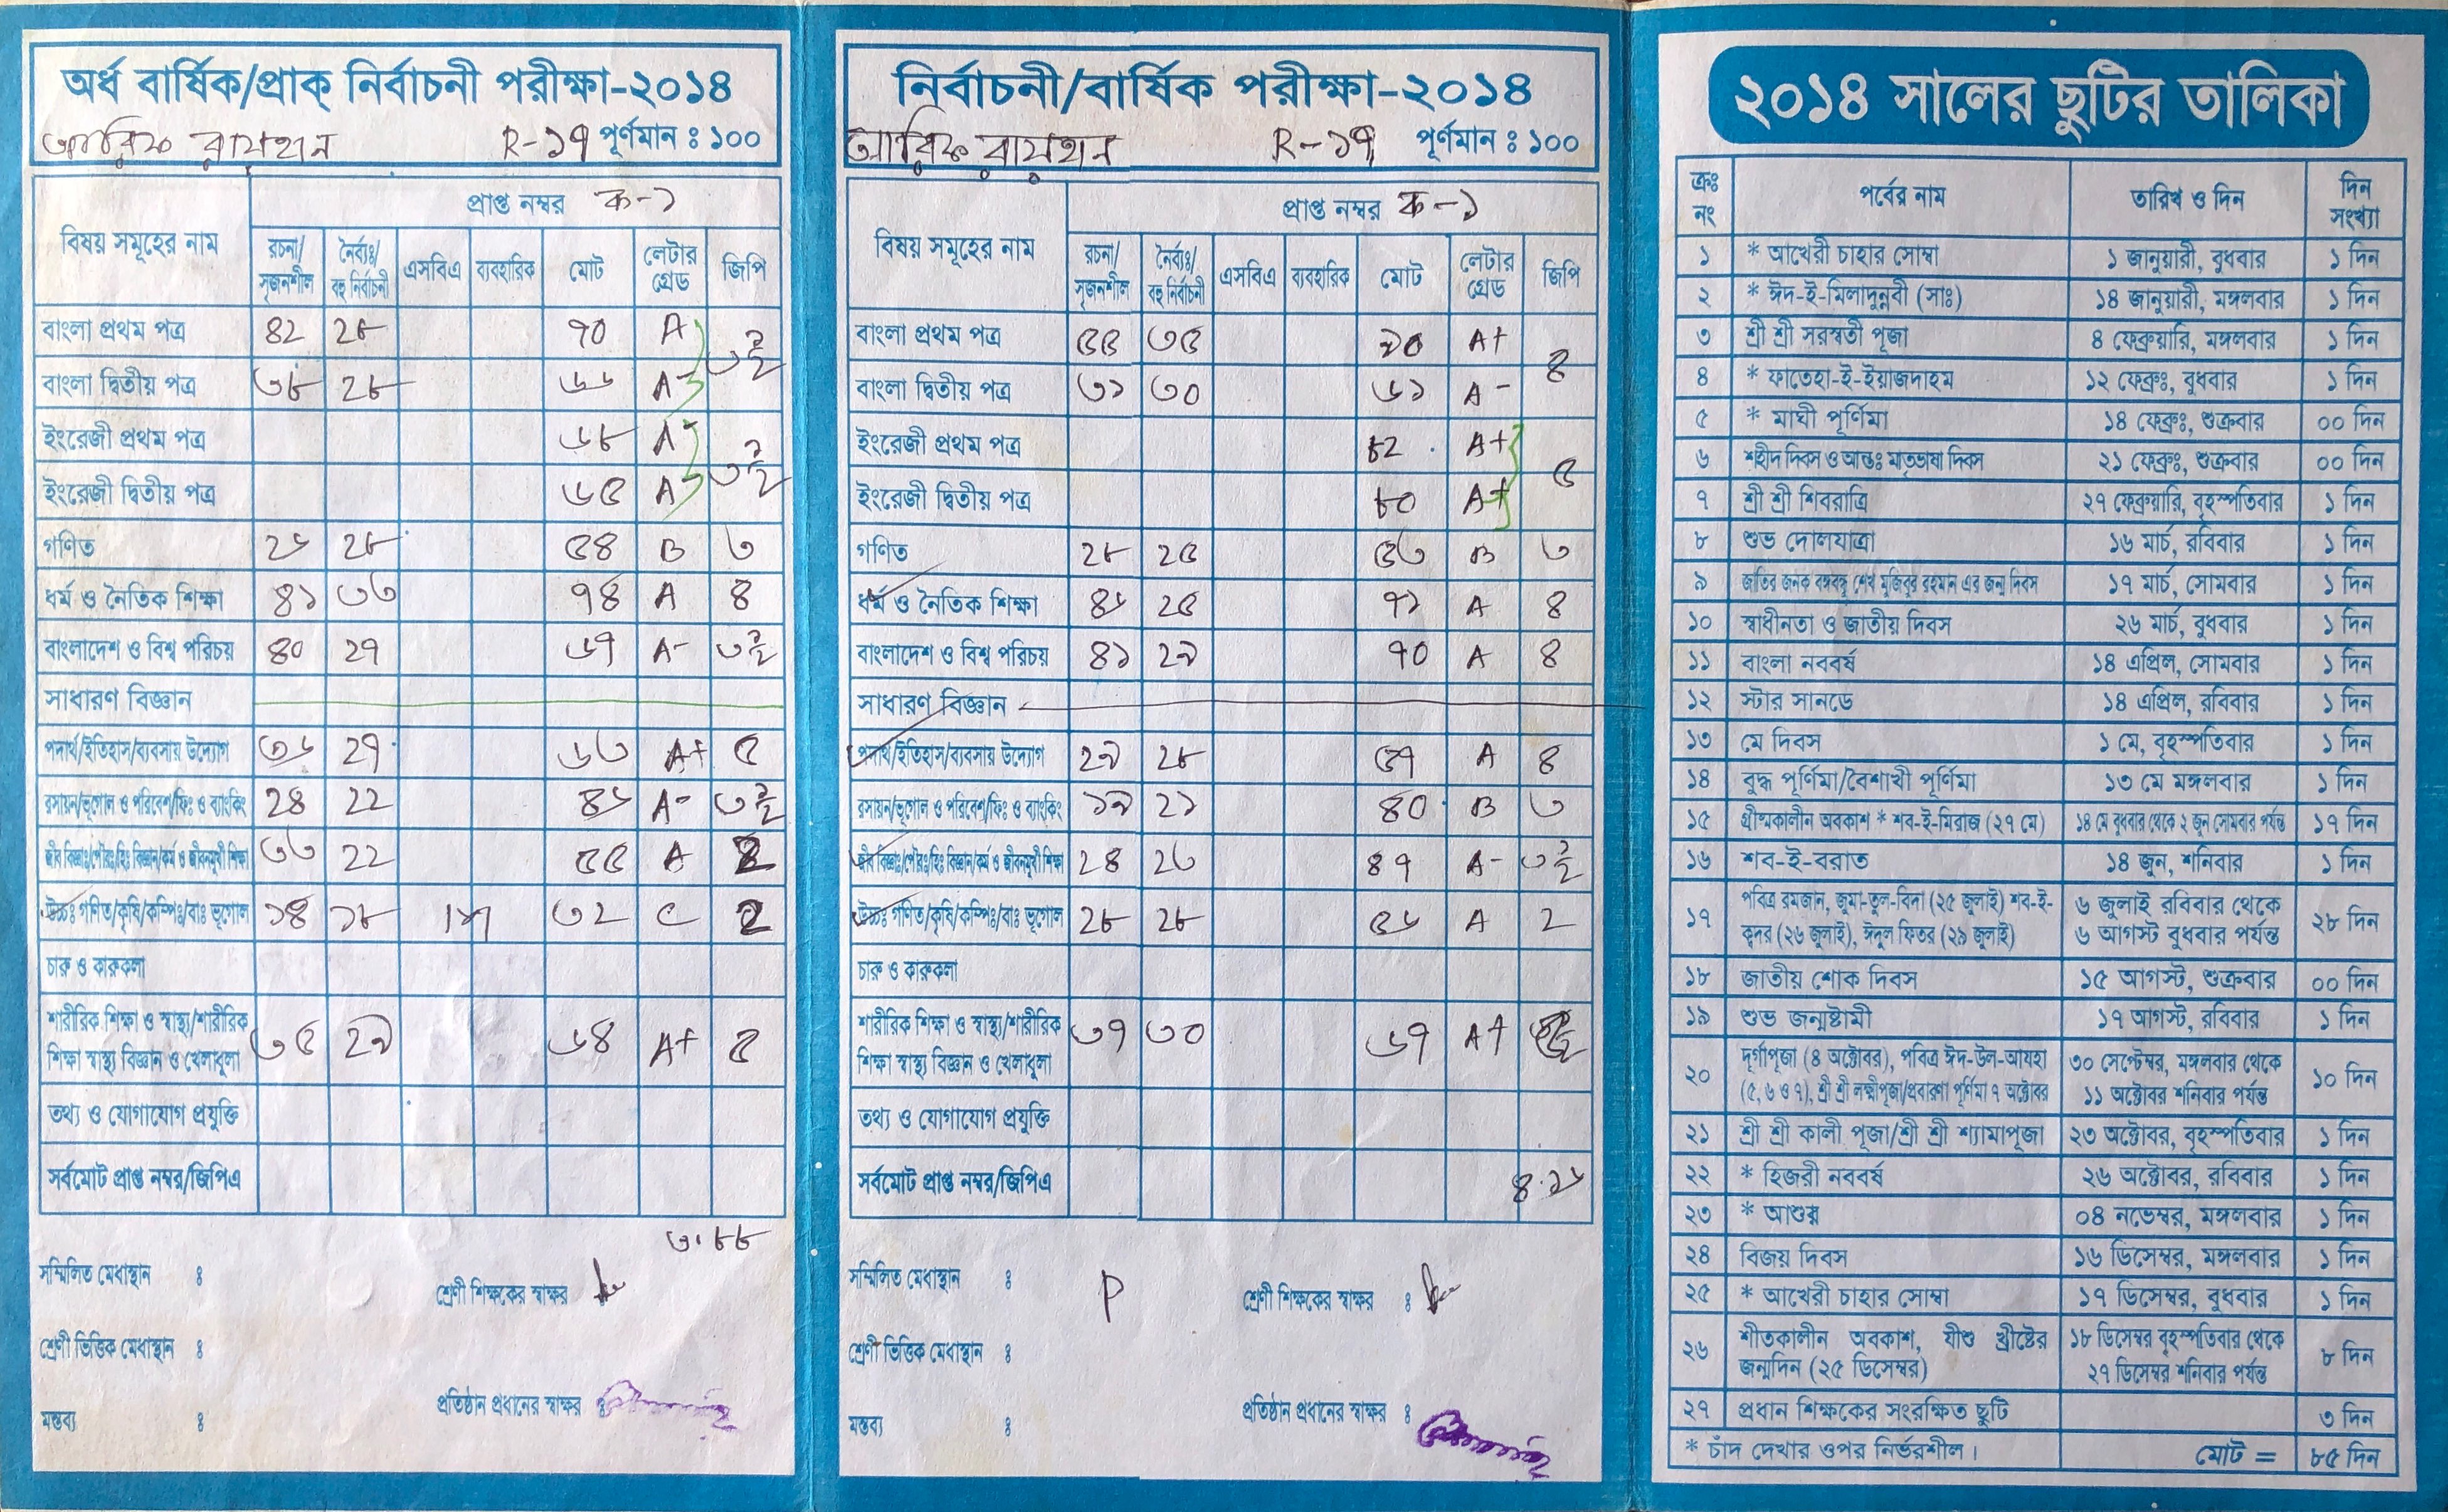 অর্ধ বার্ষিক/প্রাক্ নির্বাচনী পরীক্ষা-২০১৪
আরিফ রায়হান R-১৭ পূর্ণমান ঃ ১০০
বিষয় সমূহের নাম প্রাপ্ত নম্বর ক-১
রচনা/সৃজনশীল নৈর্ব্যঃ/বহু নির্বাচনী এসবিএ ব্যবহারিক মোট লেটার গ্রেড জিপি
বাংলা প্রথম পত্র ৪২ ২৮ ৭০ A
বাংলা দ্বিতীয় পত্র ৩৮ ২৮ ৬৬ A- ৩ ১/২
ইংরেজী প্রথম পত্র ৬৮ A-
ইংরেজী দ্বিতীয় পত্র ৬৫ A- ৩ ১/২
গণিত ২৬ ২৮ ৫৪ B ৩
ধর্ম ও নৈতিক শিক্ষা ৪১ ৩৩ ৭৪ A ৪
বাংলাদেশ ও বিশ্ব পরিচয় ৪০ ২৭ ৬৭ A- ৩ ১/২
সাধারণ বিজ্ঞান
পদার্থ/ইতিহাস/ব্যবসায় উদ্যোগ ৩৬ ২৭ ৬৩ A+ ৫
রসায়ন/ভূগোল ও পরিবেশ/ফিঃ ও ব্যাংকিং ২৪ ২২ ৪৬ A- ৩ ১/২
জীব বিজ্ঞাঃ/পৌরঃ/হিঃ বিজ্ঞান/কর্ম ও জীবনমুখী শিক্ষা ৩৩ ২২ ৫৫ A
উচ্চঃ গণিত/কৃষি/কম্পিঃ/বাঃ ভূগোল ১৪ ১৮ ৩২ C ২
চারু ও কারুকলা
শারীরিক শিক্ষা ও স্বাস্থ্য/শারীরিক শিক্ষা স্বাস্থ্য বিজ্ঞান ও খেলাধুলা ৩৫ ২৯ ৬৪ A+ ৫
তথ্য ও যোগাযোগ প্রযুক্তি
সর্বমোট প্রাপ্ত নম্বর/জিপিএ
৩.৮৮
সম্মিলিত মেধাস্থান ঃ
শ্রেণী শিক্ষকের স্বাক্ষর
শ্রেণী ভিত্তিক মেধাস্থান ঃ
প্রতিষ্ঠান প্রধানের স্বাক্ষর ঃ
মন্তব্য ঃ
নির্বাচনী/বার্ষিক পরীক্ষা-২০১৪
আরিফ রায়হান R-১৭ পূর্ণমান ঃ ১০০
বিষয় সমূহের নাম প্রাপ্ত নম্বর ক-১
রচনা/সৃজনশীল নৈর্ব্যঃ/বহু নির্বাচনী এসবিএ ব্যবহারিক মোট লেটার গ্রেড জিপি
বাংলা প্রথম পত্র ৫৫ ৩৫ ৯০ A+
বাংলা দ্বিতীয় পত্র ৩১ ৩০ ৬১ A- ৪
ইংরেজী প্রথম পত্র ৮২ A+
ইংরেজী দ্বিতীয় পত্র ৮০ A+ ৫
গণিত ২৮ ২৫ ৫৩ B ৩
ধর্ম ও নৈতিক শিক্ষা ৪৬ ২৫ ৭১ A ৪
বাংলাদেশ ও বিশ্ব পরিচয় ৪১ ২৯ ৭০ A ৪
সাধারণ বিজ্ঞান
পদার্থ/ইতিহাস/ব্যবসায় উদ্যোগ ২৯ ২৮ ৫৭ A ৪
রসায়ন/ভূগোল ও পরিবেশ/ফিঃ ও ব্যাংকিং ১৯ ২১ ৪০ B ৩
জীব বিজ্ঞাঃ/পৌরঃ/হিঃ বিজ্ঞান/কর্ম ও জীবনমুখী শিক্ষা ২৪ ২৩ ৪৭ A- ৩ ১/২
উচ্চঃ গণিত/কৃষি/কম্পিঃ/বাঃ ভূগোল ২৮ ২৮ ৫৬ A ২
চারু ও কারুকলা
শারীরিক শিক্ষা ও স্বাস্থ্য/শারীরিক শিক্ষা স্বাস্থ্য বিজ্ঞান ও খেলাধুলা ৩৭ ৩০ ৬৭ A+
তথ্য ও যোগাযোগ প্রযুক্তি
সর্বমোট প্রাপ্ত নম্বর/জিপিএ ৪.১৬
সম্মিলিত মেধাস্থান ঃ P
শ্রেণী শিক্ষকের স্বাক্ষর ঃ
শ্রেণী ভিত্তিক মেধাস্থান ঃ
প্রতিষ্ঠান প্রধানের স্বাক্ষর ঃ
মন্তব্য ঃ
২০১৪ সালের ছুটির তালিকা
ক্রঃ নং পর্বের নাম তারিখ ও দিন দিন সংখ্যা
১ * আখেরী চাহার সোম্বা ১ জানুয়ারী, বুধবার ১ দিন
২ * ঈদ-ই-মিলাদুন্নবী (সাঃ) ১৪ জানুয়ারী, মঙ্গলবার ১ দিন
৩ শ্রী শ্রী সরস্বতী পূজা ৪ ফেব্রুয়ারি, মঙ্গলবার ১ দিন
৪ * ফাতেহা-ই-ইয়াজদাহম ১২ ফেব্রুঃ, বুধবার ১ দিন
৫ * মাঘী পূর্ণিমা ১৪ ফেব্রুঃ, শুক্রবার ০০ দিন
৬ শহীদ দিবস ও আন্তঃ মাতৃভাষা দিবস ২১ ফেব্রুঃ, শুক্রবার ০০ দিন
৭ শ্রী শ্রী শিবরাত্রি ২৭ ফেব্রুয়ারি, বৃহস্পতিবার ১ দিন
৮ শুভ দোলযাত্রা ১৬ মার্চ, রবিবার ১ দিন
৯ জাতির জনক বঙ্গবন্ধু শেখ মুজিবুর রহমান এর জন্ম দিবস ১৭ মার্চ, সোমবার ১ দিন
১০ স্বাধীনতা ও জাতীয় দিবস ২৬ মার্চ, বুধবার ১ দিন
১১ বাংলা নববর্ষ ১৪ এপ্রিল, সোমবার ১ দিন
১২ স্টার সানডে ১৪ এপ্রিল, রবিবার ১ দিন
১৩ মে দিবস ১ মে, বৃহস্পতিবার ১ দিন
১৪ বুদ্ধ পূর্ণিমা/বৈশাখী পূর্ণিমা ১৩ মে মঙ্গলবার ১ দিন
১৫ গ্রীষ্মকালীন অবকাশ * শব-ই-মিরাজ (২৭ মে) ১৪ মে বুধবার থেকে ২ জুন সোমবার পর্যন্ত ১৭ দিন
১৬ শব-ই-বরাত ১৪ জুন, শনিবার ১ দিন
১৭ পবিত্র রমজান, জুমা-তুল-বিদা (২৫ জুলাই) শব-ই-ক্বদর (২৬ জুলাই), ঈদুল ফিতর (২৯ জুলাই) ৬ জুলাই রবিবার থেকে ৬ আগস্ট বুধবার পর্যন্ত ২৮ দিন
১৮ জাতীয় শোক দিবস ১৫ আগস্ট, শুক্রবার ০০ দিন
১৯ শুভ জন্মাষ্টামী ১৭ আগস্ট, রবিবার ১ দিন
২০ দূর্গাপূজা (৪ অক্টোবর), পবিত্র ঈদ-উল-আযহা (৫, ৬ ও ৭), শ্রী শ্রী লক্ষ্মীপূজা/প্রবারণা পূর্ণিমা ৭ অক্টোবর ৩০ সেপ্টেম্বর, মঙ্গলবার থেকে ১১ অক্টোবর শনিবার পর্যন্ত ১০ দিন
২১ শ্রী শ্রী কালী পূজা/শ্রী শ্রী শ্যামাপূজা ২৩ অক্টোবর, বৃহস্পতিবার ১ দিন
২২ * হিজরী নববর্ষ ২৬ অক্টোবর, রবিবার ১ দিন
২৩ * আশুরা ০৪ নভেম্বর, মঙ্গলবার ১ দিন
২৪ বিজয় দিবস ১৬ ডিসেম্বর, মঙ্গলবার ১ দিন
২৫ * আখেরী চাহার সোম্বা ১৭ ডিসেম্বর, বুধবার ১ দিন
২৬ শীতকালীন অবকাশ, যীশু খ্রীষ্টের জন্মদিন (২৫ ডিসেম্বর) ১৮ ডিসেম্বর বৃহস্পতিবার থেকে ২৭ ডিসেম্বর শনিবার পর্যন্ত ৮ দিন
২৭ প্রধান শিক্ষকের সংরক্ষিত ছুটি ৩ দিন
* চাঁদ দেখার ওপর নির্ভরশীল। মোট = ৮৫ দিন